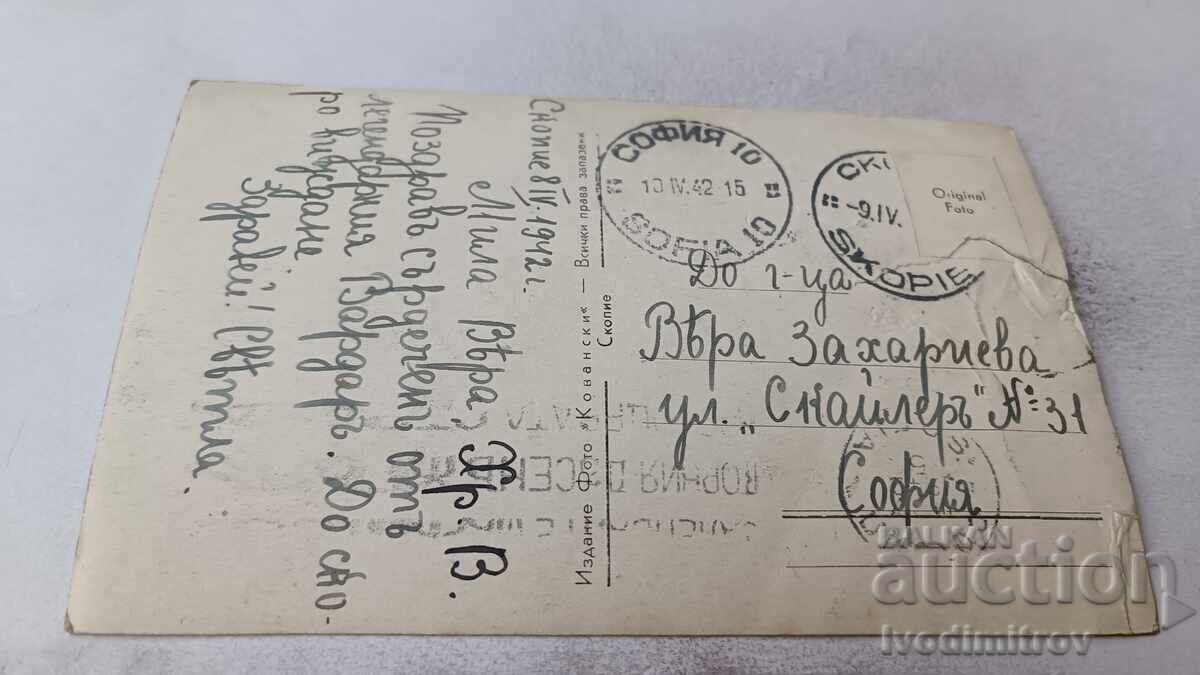 Скопие 8 IV. 1942 г.
Мила Вѣра, Хр. В.
Поздравъ сърдеченъ отъ
легендарния Вардаръ. До ско-
ро виждане
Здравей! Свѣтла.
Издание Фото »Ковански« — Всички права запазени
Скопие
СОФИЯ 10
10 IV. 42 15
SOFIA 10
СК
-9. IV.
SKOPIE
Original
Foto
До г-ца
Вѣра Захариева
ул. „Скайлеръ" №: 31
София
BALKAN
auction
Ivodimitrov